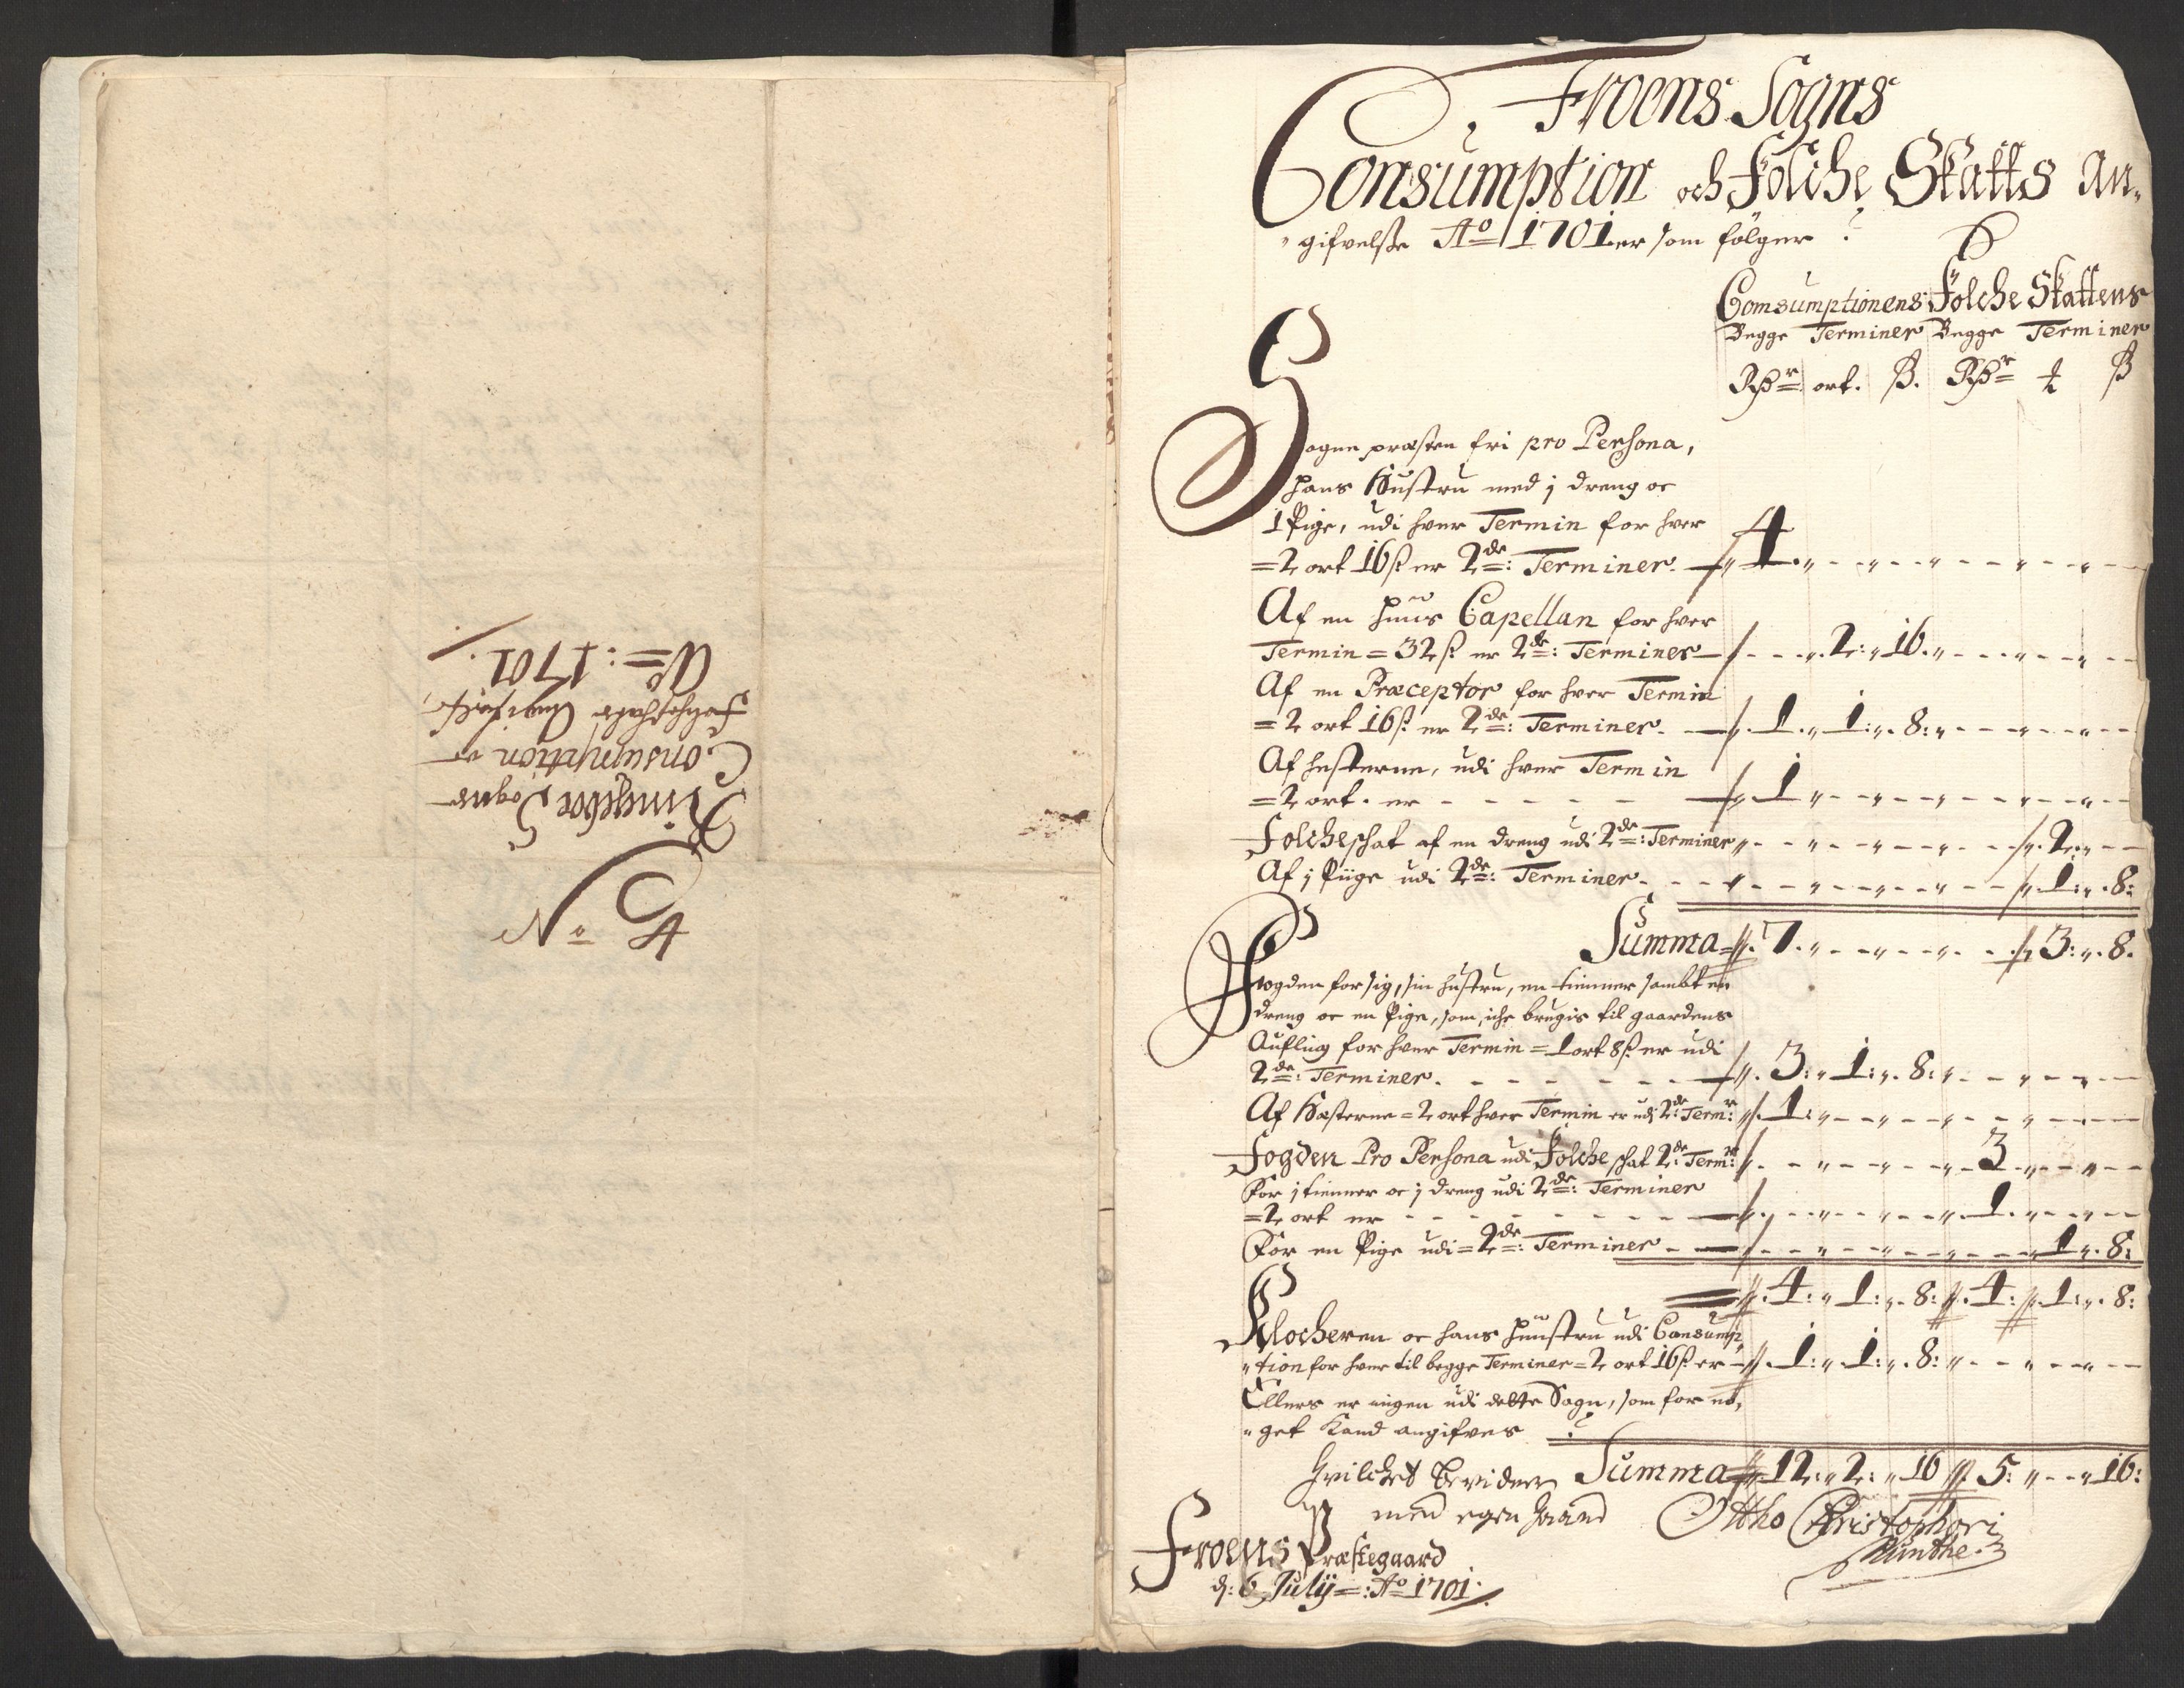 No 4
Ringeboe Sogns
Consumption oc
Folcheschatz Angifvelse
Ao =: 1701.
Froens Sogns
Consumption och Folche Skatts An-
gifvelsse Ao 1701 er som følger
Consumptionens Folche Skattens
Begge Terminer Begge Terminer
Rdr ort. ß. Rdr ort ß
Sogne præsten fri pro Persona,
Hans Hustru med j dreng oc
1 Pige, udi hver Termin for hver
= 2 ort 16 ß er 2de: Terminer. 4
Af en Huus Capellan for hver
Termin = 32 ß er 2de: Terminer 2: 16.
Af en Præceptor for hver Termin
= 2 ort 16 ß er 2de: Terminer. 1. 1: 8:
Af hesterne, udi hver Termin
= 2 ort. er 1
Folcheschat af en dreng udi 2de: Terminer 2:
Af j Piige udi 2de: Terminer 1: 8:
Summa 7. 3: 8.
Fogden for sig, sin hustru, en tienner sambt en
dreng oc en Pige, som iche brugis til gaardens
Aufling for hver Termin = 1 ort 8 ß er udi
2de: Terminer. 3: 1: 8:
Af Hæsterne = 2 ort hver Termin er udi 2de Termr: 1:
Fogden Pro Persona udi Folche schat 2de: Termr: 3
For j tienner oc j dreng udi 2de: Terminer
= 2 ort er 1
For en Pige udi = 2de: Terminer 1. 8:
4: 1: 8: 4: 1: 8:
Klocheren oc hans Huustru udi Consump-
tion for hver til begge Terminer = 2 ort 16 ß er 1: 1: 8:
Ellers er ingen udi dette Sogn, som for no-
get Kand angifves
Hvilchet bevidner Summa 12: 2: 16 5: 16:
med egen Haand Ottho Christophori
Munthe.
Froens Præstegaard
d: 6 Julij =: Ao 1701.